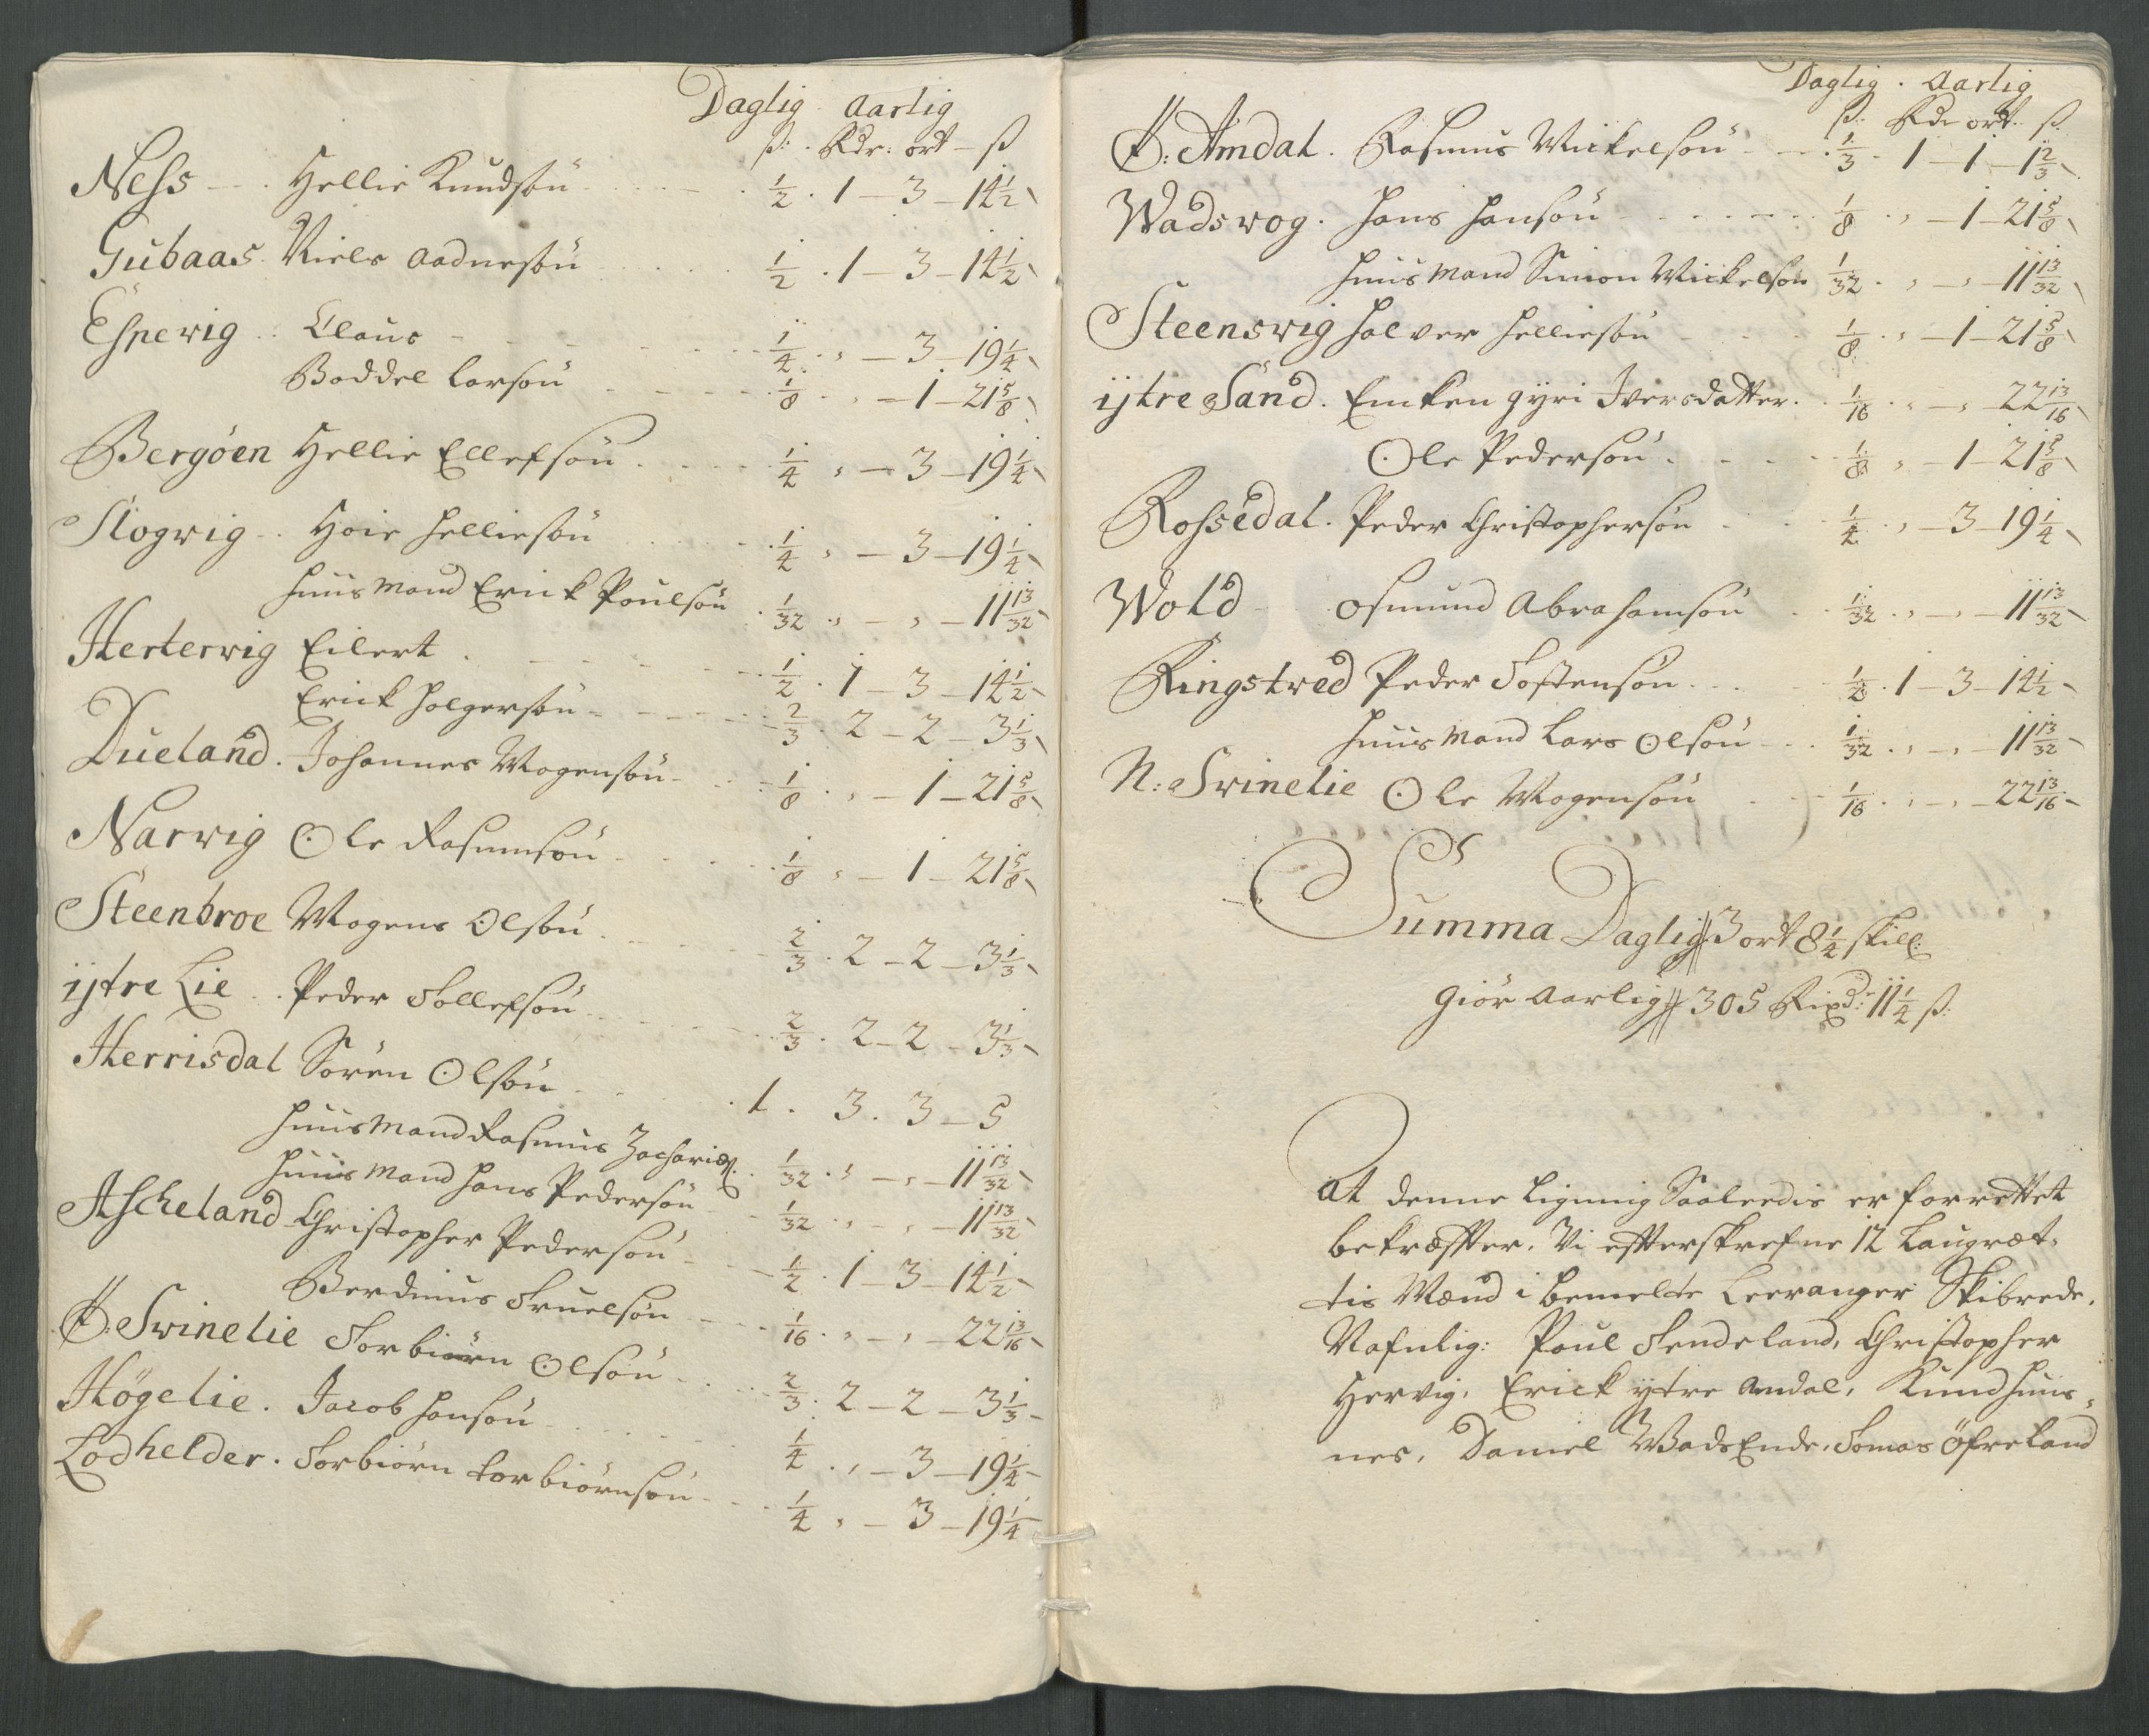 Daglig. Aarlig
ß: Rdr: ort – ß
Ness Hellie Knudsøn ½ . 1 – 3 – 14½
Gubaas Niels Aadnesøn ½ . 1 – 3 – 14½
Espevig Claus ¼ . „ – 3 – 19¼
Boddel Larsøn ⅛ . „ – 1 – 21⅝
Bergöen Hellie Ellefsøn ¼ „ – 3 – 19¼
Slogvig Hoie Helliesøn ¼ „ – 3 – 19¼
Huusmand Erick Poulsøn 1/32 „ – „ – 11 13/32
Hertervig Eilert ½ . 1 – 3 – 14½
Erick Holgersøn ⅔ . 2 – 2 – 3⅓
Dueland. Johannes Mogensøn ⅛ . „ – 1 – 21⅝
Narvig Ole Rasmusøn ⅛ „ – 1 – 21⅝
Steenbroe Mogens Olsøn ⅔ . 2 – 2 – 3⅓
ijtre Lie Peder Tollefsøn ⅔ . 2 – 2 – 3⅓
Herrisdal Sören Olsøn 1 . 3 . 3 – 5
Huusmand Rasmus Zachariæs. 1/32 . „ – „ – 11 13/32
Huusmand Hans Pedersøn 1/32 . „ – „ – 11 13/32
Ascheland Christopher Pedersøn ½ . 1 – 3 – 14½
Berdinus Truelsøn 1/16 . „ – „ – 22 13/16
Ø: Svinelie Torbiörn Olsøn ⅔ . 2 – 2 – 3⅓
Högelie. Jacob Hansøn ¼ . „ – 3 – 19¼
Lodhelder. Torbiörn Torbiörnsøn ¼ „ – 3 – 19¼
Daglig . Aarlig
ß: Rdr ort: ß.
Ø: Amdal. Rasmus Mickelsøn ⅓ . 1 – 1 – 1⅔
Wadsvog. Hans Hansøn ⅛ . „ – 1 – 21⅝
Huusmand Simon Mickelsøn 1/32 . „ – „ – 11 13/32
Steensvig Halvor Helliesøn ⅛ . „ – 1 – 21⅝
ijtre Sand. Encken Gyri Iversdatter. 1/16 . „ – „ 22 13/16
Ole Pedersøn ⅛ „ – 1 – 21⅝
Rossedal. Peder Christophersøn ¼ . „ – 3 – 19¼
Wold Osmund Abrahamsøn 1/32 . „ – „ – 11 13/32
Ringstved Peder Tostensøn ½ . 1 – 3 – 14½
Huusmand Lars Olsøn 1/32 . „ – „ – 11 13/32
N: Svinelie Ole Mogensøn 1/16 . „ – „ – 22 13/16
Summa Daglig 3 ort 8¼ skill:
Giör Aarlig 305 Rixdr: 11¼ ß:
At denne Ligning Saaleedis er forrettet
bekræffter, Vi effterskrefne 12 Laugræt-
tis Mænd i bemelte Leeranger Skibrede,
Nafnlig: Poul Tendeland, Christopher
Hervig, Erick ytre Amdal, Knud Huus-
nes, Daniel WadsEnde, Tomas Öfreland